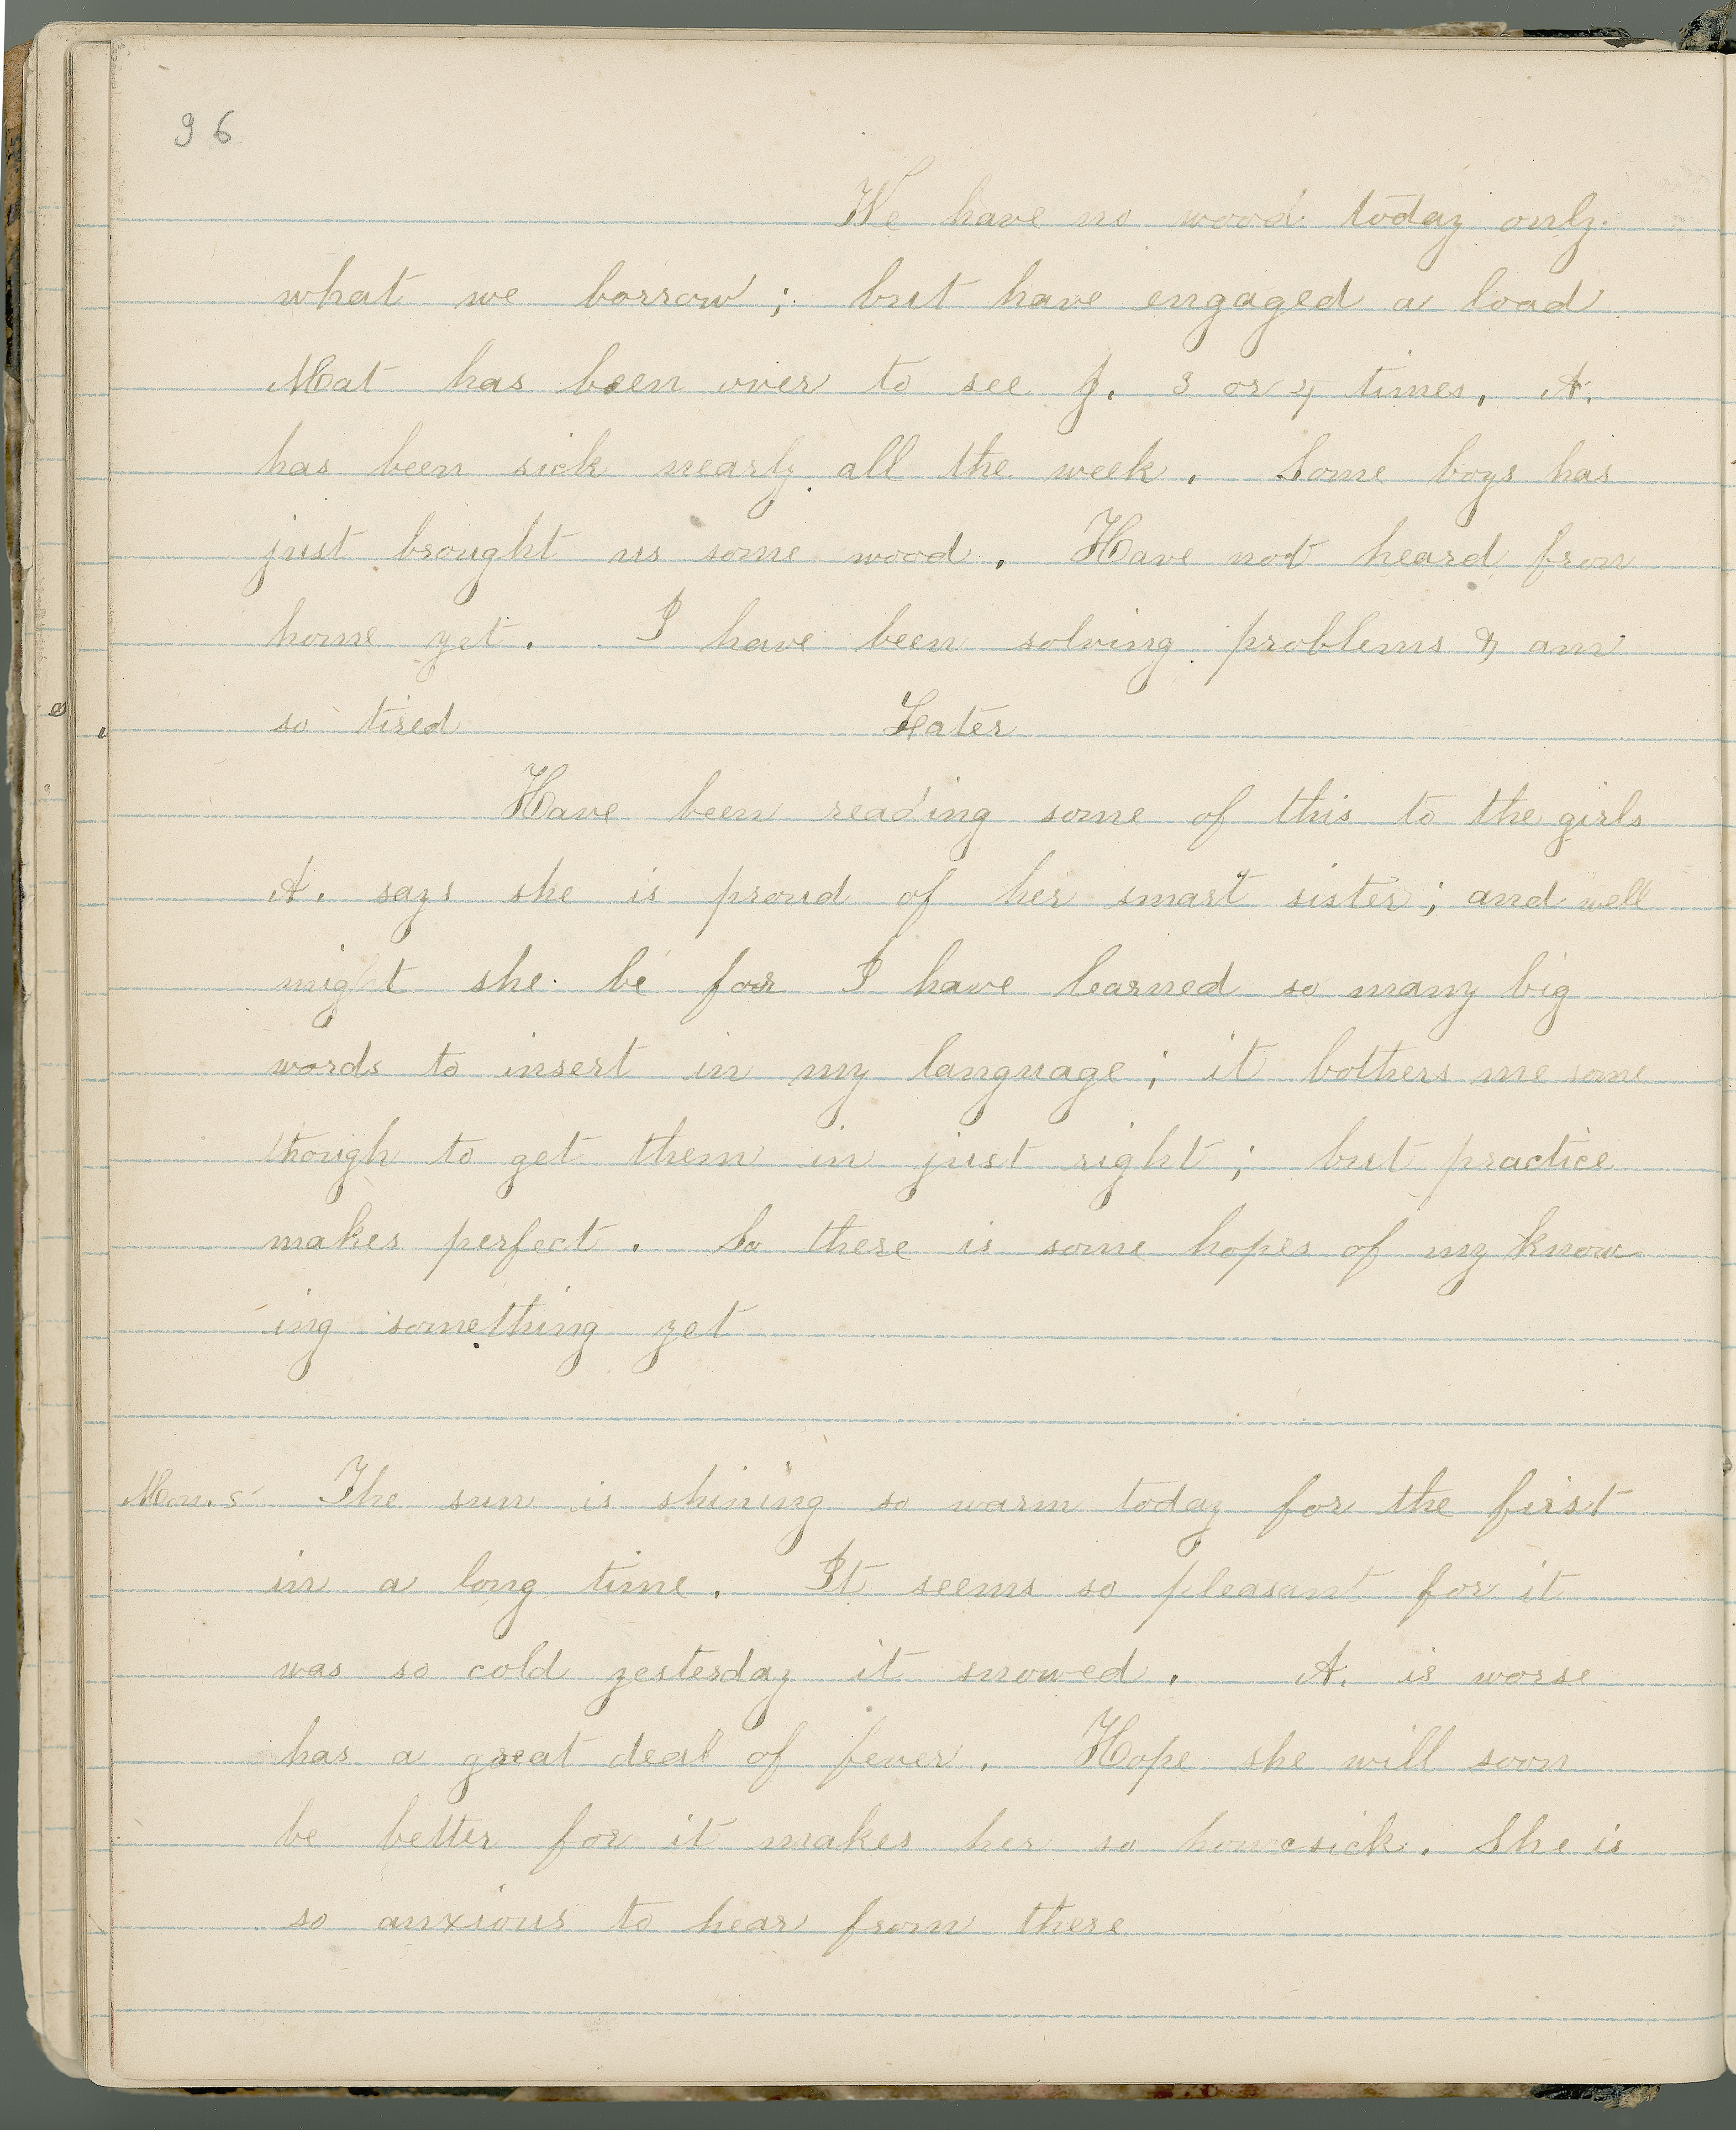 96
We have no wood today only
what we borrow; but have engaged a load
Mat has been over to see J. 3 or 4 times. A.
has been sick nearly all the week. Some boys has
just brought us some wood. Have not heard from
home yet. I have been solving problems & am
so tired Later
Have been reading some of this to the girls
A. says she is proud of her smart sister; and well
might she be for I have learned so many big
words to insert in my language; it bothers me some
though to get them in just right; but practice
makes perfect. So there is some hopes of my know-
ing something yet
Mon. 5 The sun is shining so warm today for the first
in a long time. It seems so pleasant for it
was so cold yesterday it snowed. A. is worse
has a great deal of fever. Hope she will soon
be better for it makes her so homesick. She is
so anxious to hear from there